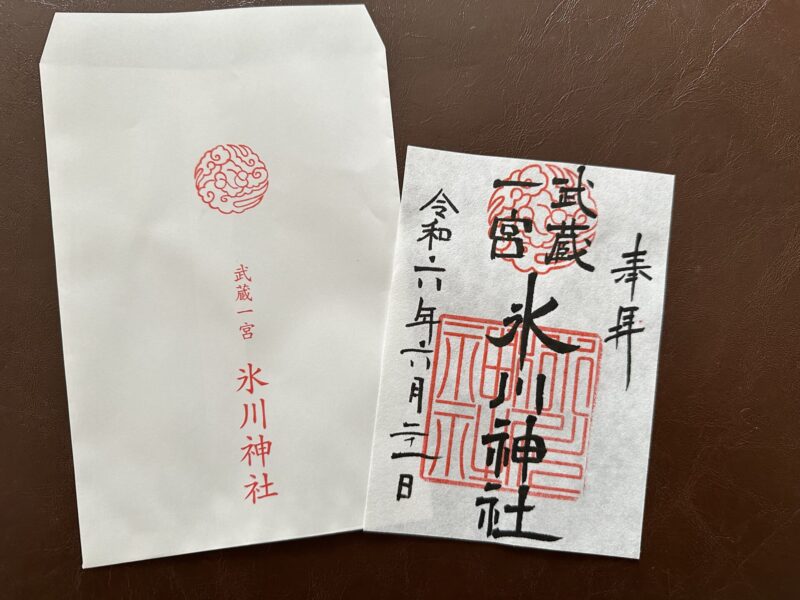 武蔵一宮
氷川神社
奉拝
武蔵
一宮
氷川神社
令和六年六月二十一日
氷川
神社